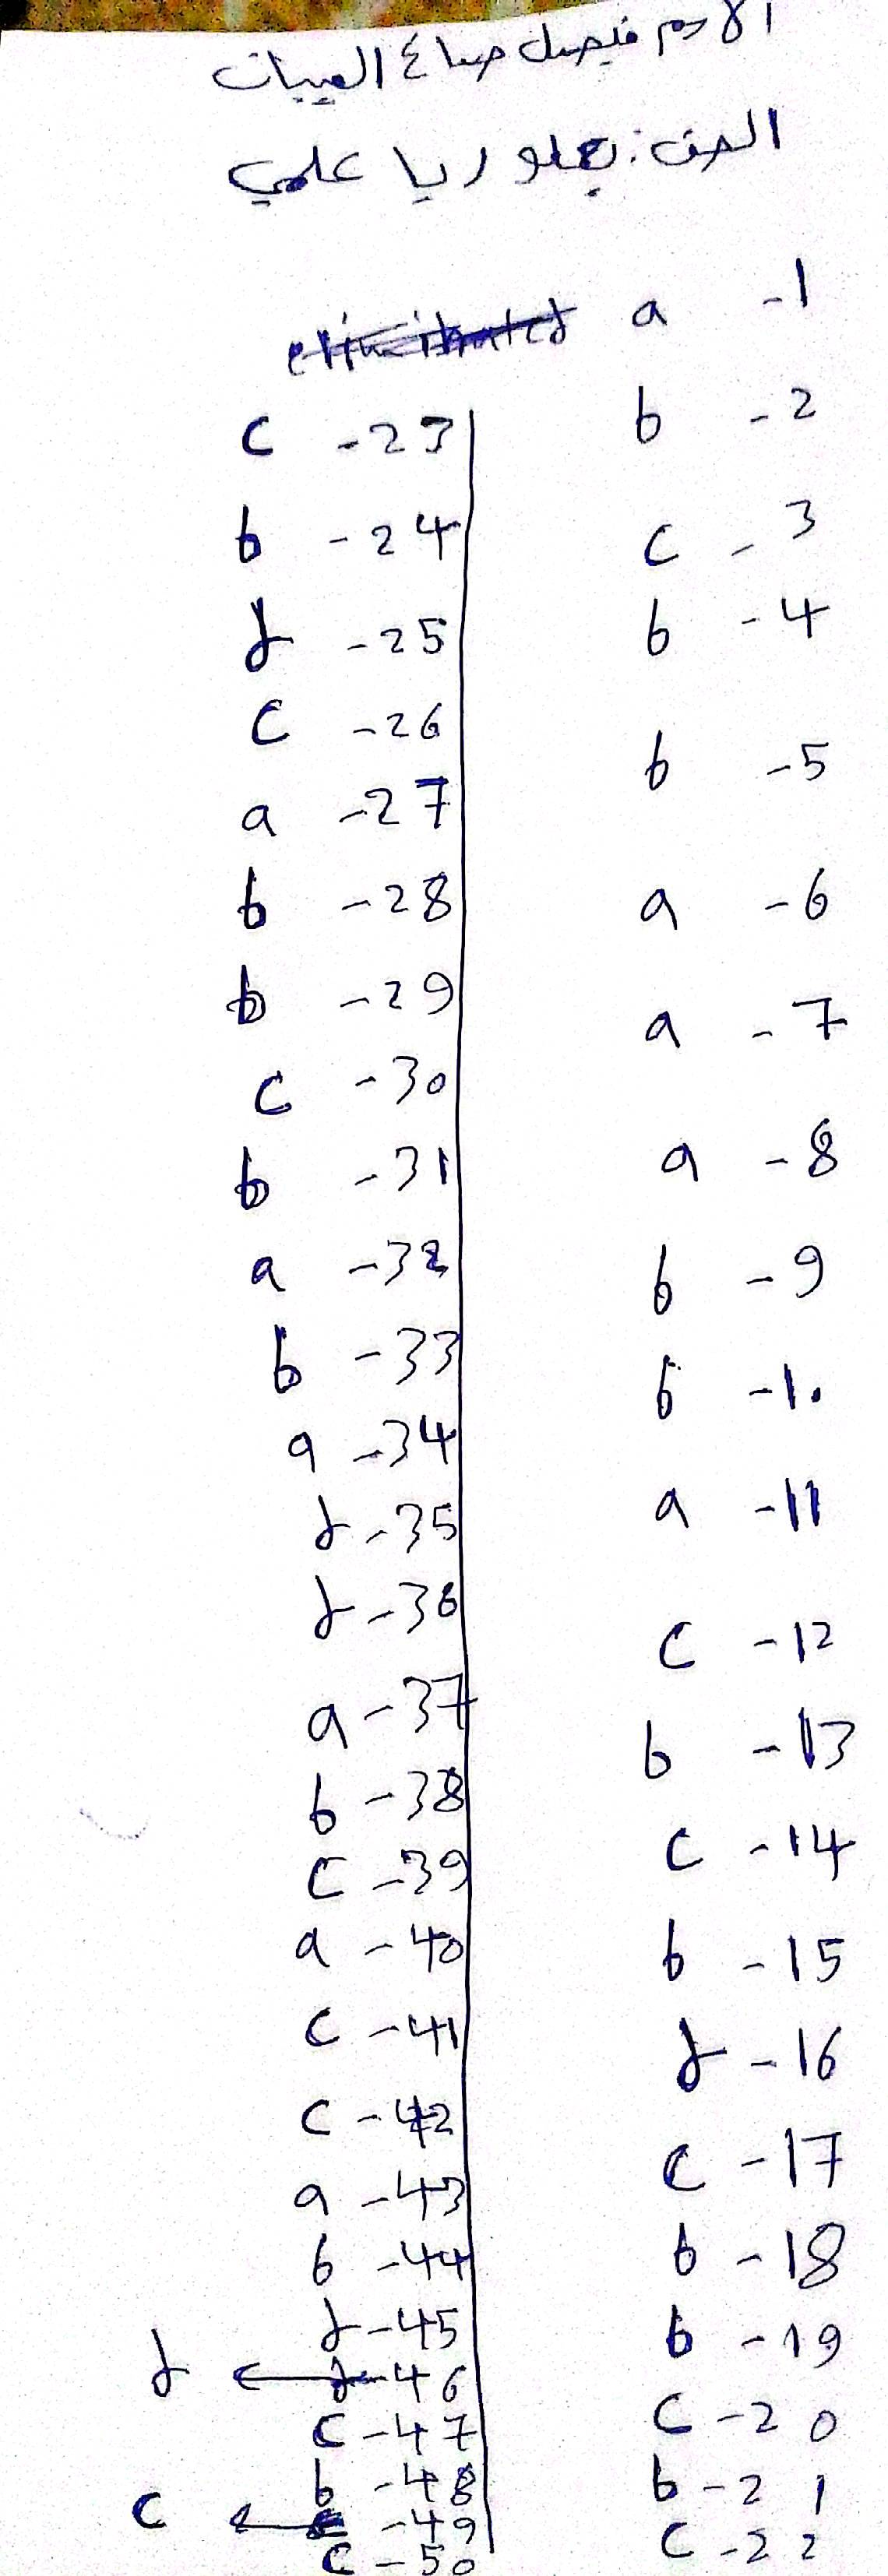 الاسم فيصل صباح العبيات
الصف: بكلوريا علمي
a -1
b -2
c -3
b -4
b -5
a -6
a -7
a -8
b -9
b -10
a -11
c -12
b -13
c -14
b -15
d -16
c -17
b -18
b -19
c -20
b -21
c -22
c -23
b -24
d -25
c -26
a -27
b -28
b -29
c -30
b -31
a -32
b -33
a -34
d -35
d -36
a -37
b -38
c -39
a -40
c -41
c -42
a -43
b -44
d -45
d ← d -46
c -47
b -48
c ← -49
c -50